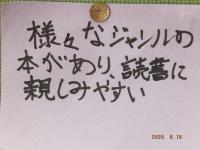 様々なジャンルの
本があり、読書に
親しみやすい
2020. 6.18